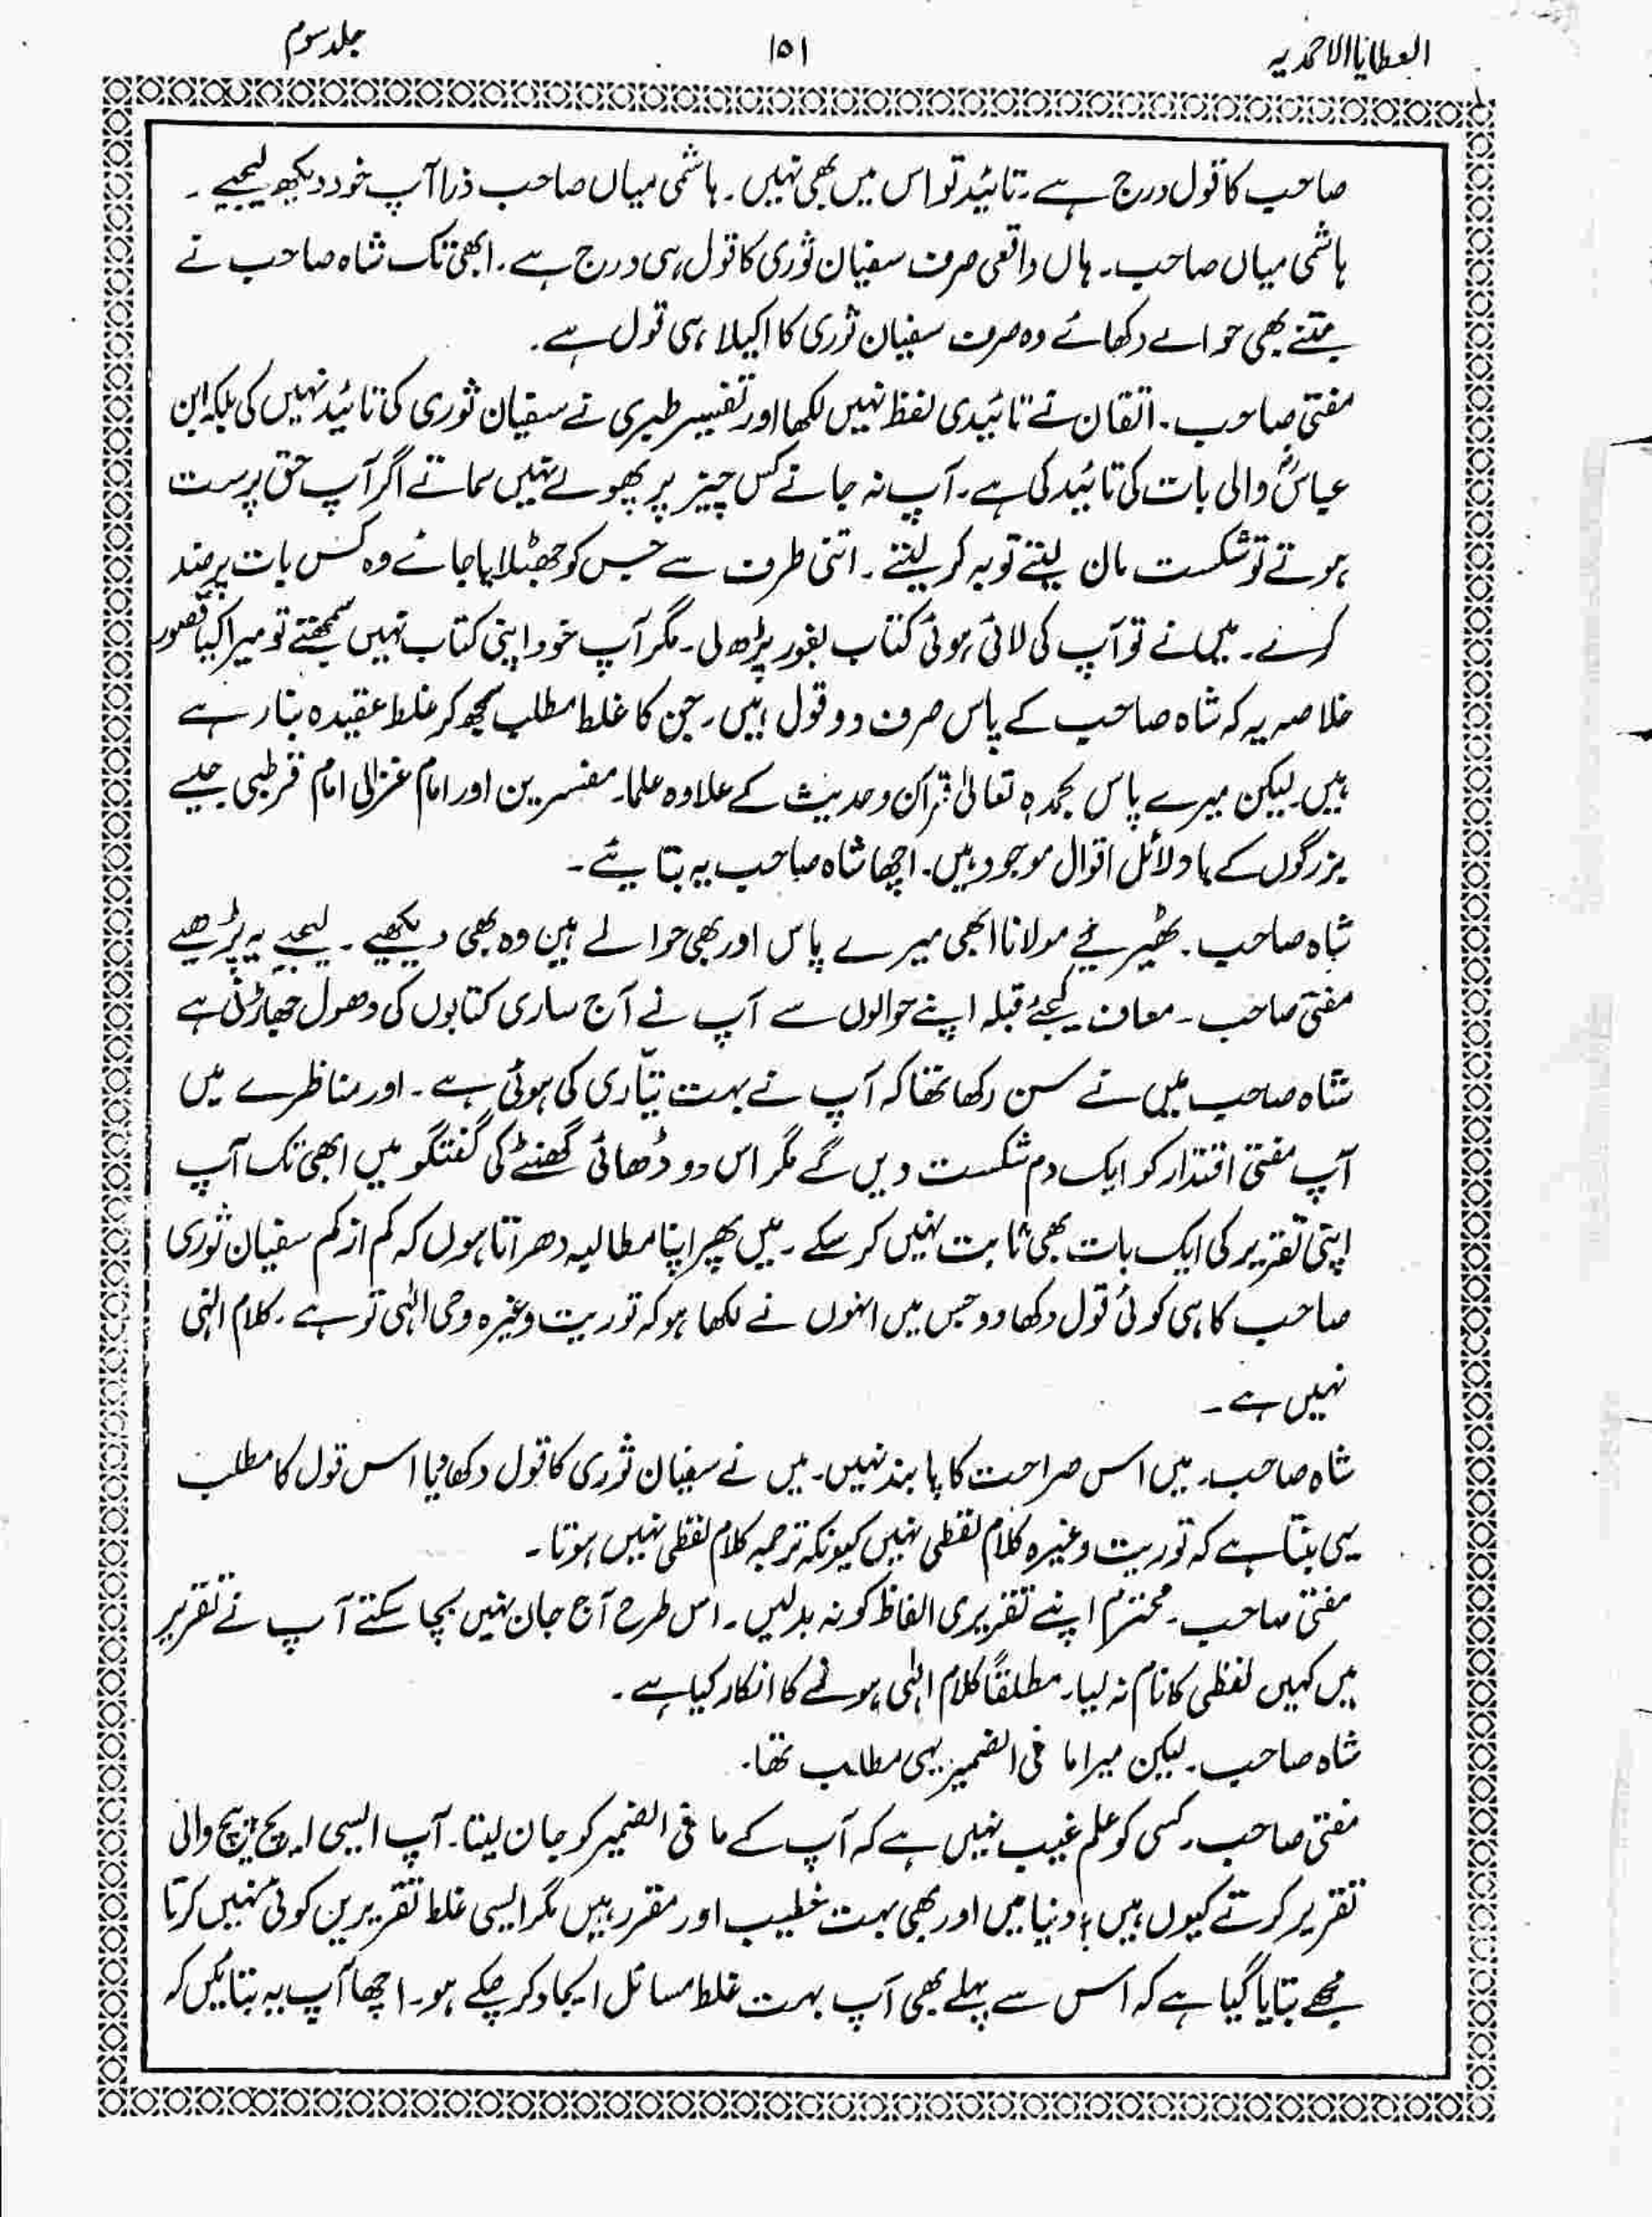 العطایا الاحمدیہ
۱۵۱
جلد سوم
صاحب کا قول درج ہے۔ تائید تو اس میں بھی نہیں۔ ہاشمی میاں صاحب ذرا آپ خود دیکھ لیجیے۔
ہاشمی میاں صاحب۔ ہاں واقعی صرف سفیان ثوری کا قول ہی درج ہے۔ ابھی تک شاہ صاحب نے
جتنے بھی حوالے دکھائے وہ صرف سفیان ثوری کا اکیلا ہی قول ہے۔
مفتی صاحب۔ اتقان نے تائیدی لفظ نہیں لکھا اور تفسیر طبری نے سفیان ثوری کی تائید نہیں کی بلکہ ابن
عباسؓ والی بات کی تائید کی ہے۔ آپ نہ جانے کس چیز پر پھولے نہیں سماتے اگر آپ حق پرست
ہوتے تو شکست مان لیتے توبہ کر لیتے۔ اتنی طرف سے جس کو جھٹلایا جائے وہ کس بات پر ضد
کرے۔ میں نے تو آپ کی لائی ہوئی کتاب بغور پڑھ لی۔ مگر آپ خود اپنی کتاب نہیں سمجھتے تو میرا کیا قصور
خلاصہ یہ کہ شاہ صاحب کے پاس صرف دو قول ہیں۔ جن کا غلط مطلب سمجھ کر غلط عقیدہ بنا رہے
ہیں لیکن میرے پاس بحمدہ تعالیٰ قرآن و حدیث کے علاوہ علما۔ مفسرین اور امام غزالی امام قرطبی جیسے
بزرگوں کے با دلائل اقوال موجود ہیں۔ اچھا شاہ صاحب یہ بتایئے۔
شاہ صاحب۔ ٹھیریئے مولانا ابھی میرے پاس اور بھی حوالے ہیں وہ بھی دیکھیے۔ لیجیے یہ پڑھیے
مفتی صاحب۔ معاف کیجئے قبلہ اپنے حوالوں سے آپ نے آج ساری کتابوں کی دھول جھاڑنی ہے
شاہ صاحب میں نے سن رکھا تھا کہ آپ نے بہت تیّاری کی ہوئی ہے۔ اور مناظرے میں
آپ مفتی اقتدار کو ایک دم شکست دیں گے مگر اس دو ڈھائی گھنٹے کی گفتگو میں ابھی تک آپ
اپنی تقریر کی ایک بات بھی ثابت نہیں کر سکے۔ میں پھر اپنا مطالبہ دھراتا ہوں کہ کم از کم سفیان ثوری
صاحب کا ہی کوئی قول دکھا دو جس میں انہوں نے لکھا ہو کہ توریت وغیرہ وحی الٰہی تو ہے۔ کلام الٰہی
نہیں ہے۔
شاہ صاحب۔ میں اس صراحت کا پابند نہیں۔ میں نے سفیان ثوری کا قول دکھا دیا اس قول کا مطلب
یہی بنتا ہے کہ توریت وغیرہ کلام لفظی نہیں کیونکہ ترجمہ کلام لفظی نہیں ہوتا۔
مفتی صاحب۔ محترم اپنے تقریری الفاظ کو نہ بدلیں۔ اس طرح آج جان نہیں بچا سکتے آپ نے تقریر
میں کہیں لفظی کا نام نہ لیا۔ مطلقاً کلام الٰہی ہونے کا انکار کیا ہے۔
شاہ صاحب۔ لیکن میرا ما فی الضمیر یہی مطلب تھا۔
مفتی صاحب۔ کسی کو علم غیب نہیں ہے کہ آپ کے ما فی الضمیر کو جان لیتا۔ آپ ایسی ایچ پیچ والی
تقریر کرتے کیوں ہیں؟ دنیا میں اور بھی بہت خطیب اور مقرر ہیں مگر ایسی غلط تقریریں کوئی نہیں کرتا
مجھے بتایا گیا ہے کہ اس سے پہلے بھی آپ بہت غلط مسائل ایجاد کر چکے ہو۔ اچھا آپ یہ بتائیں کہ